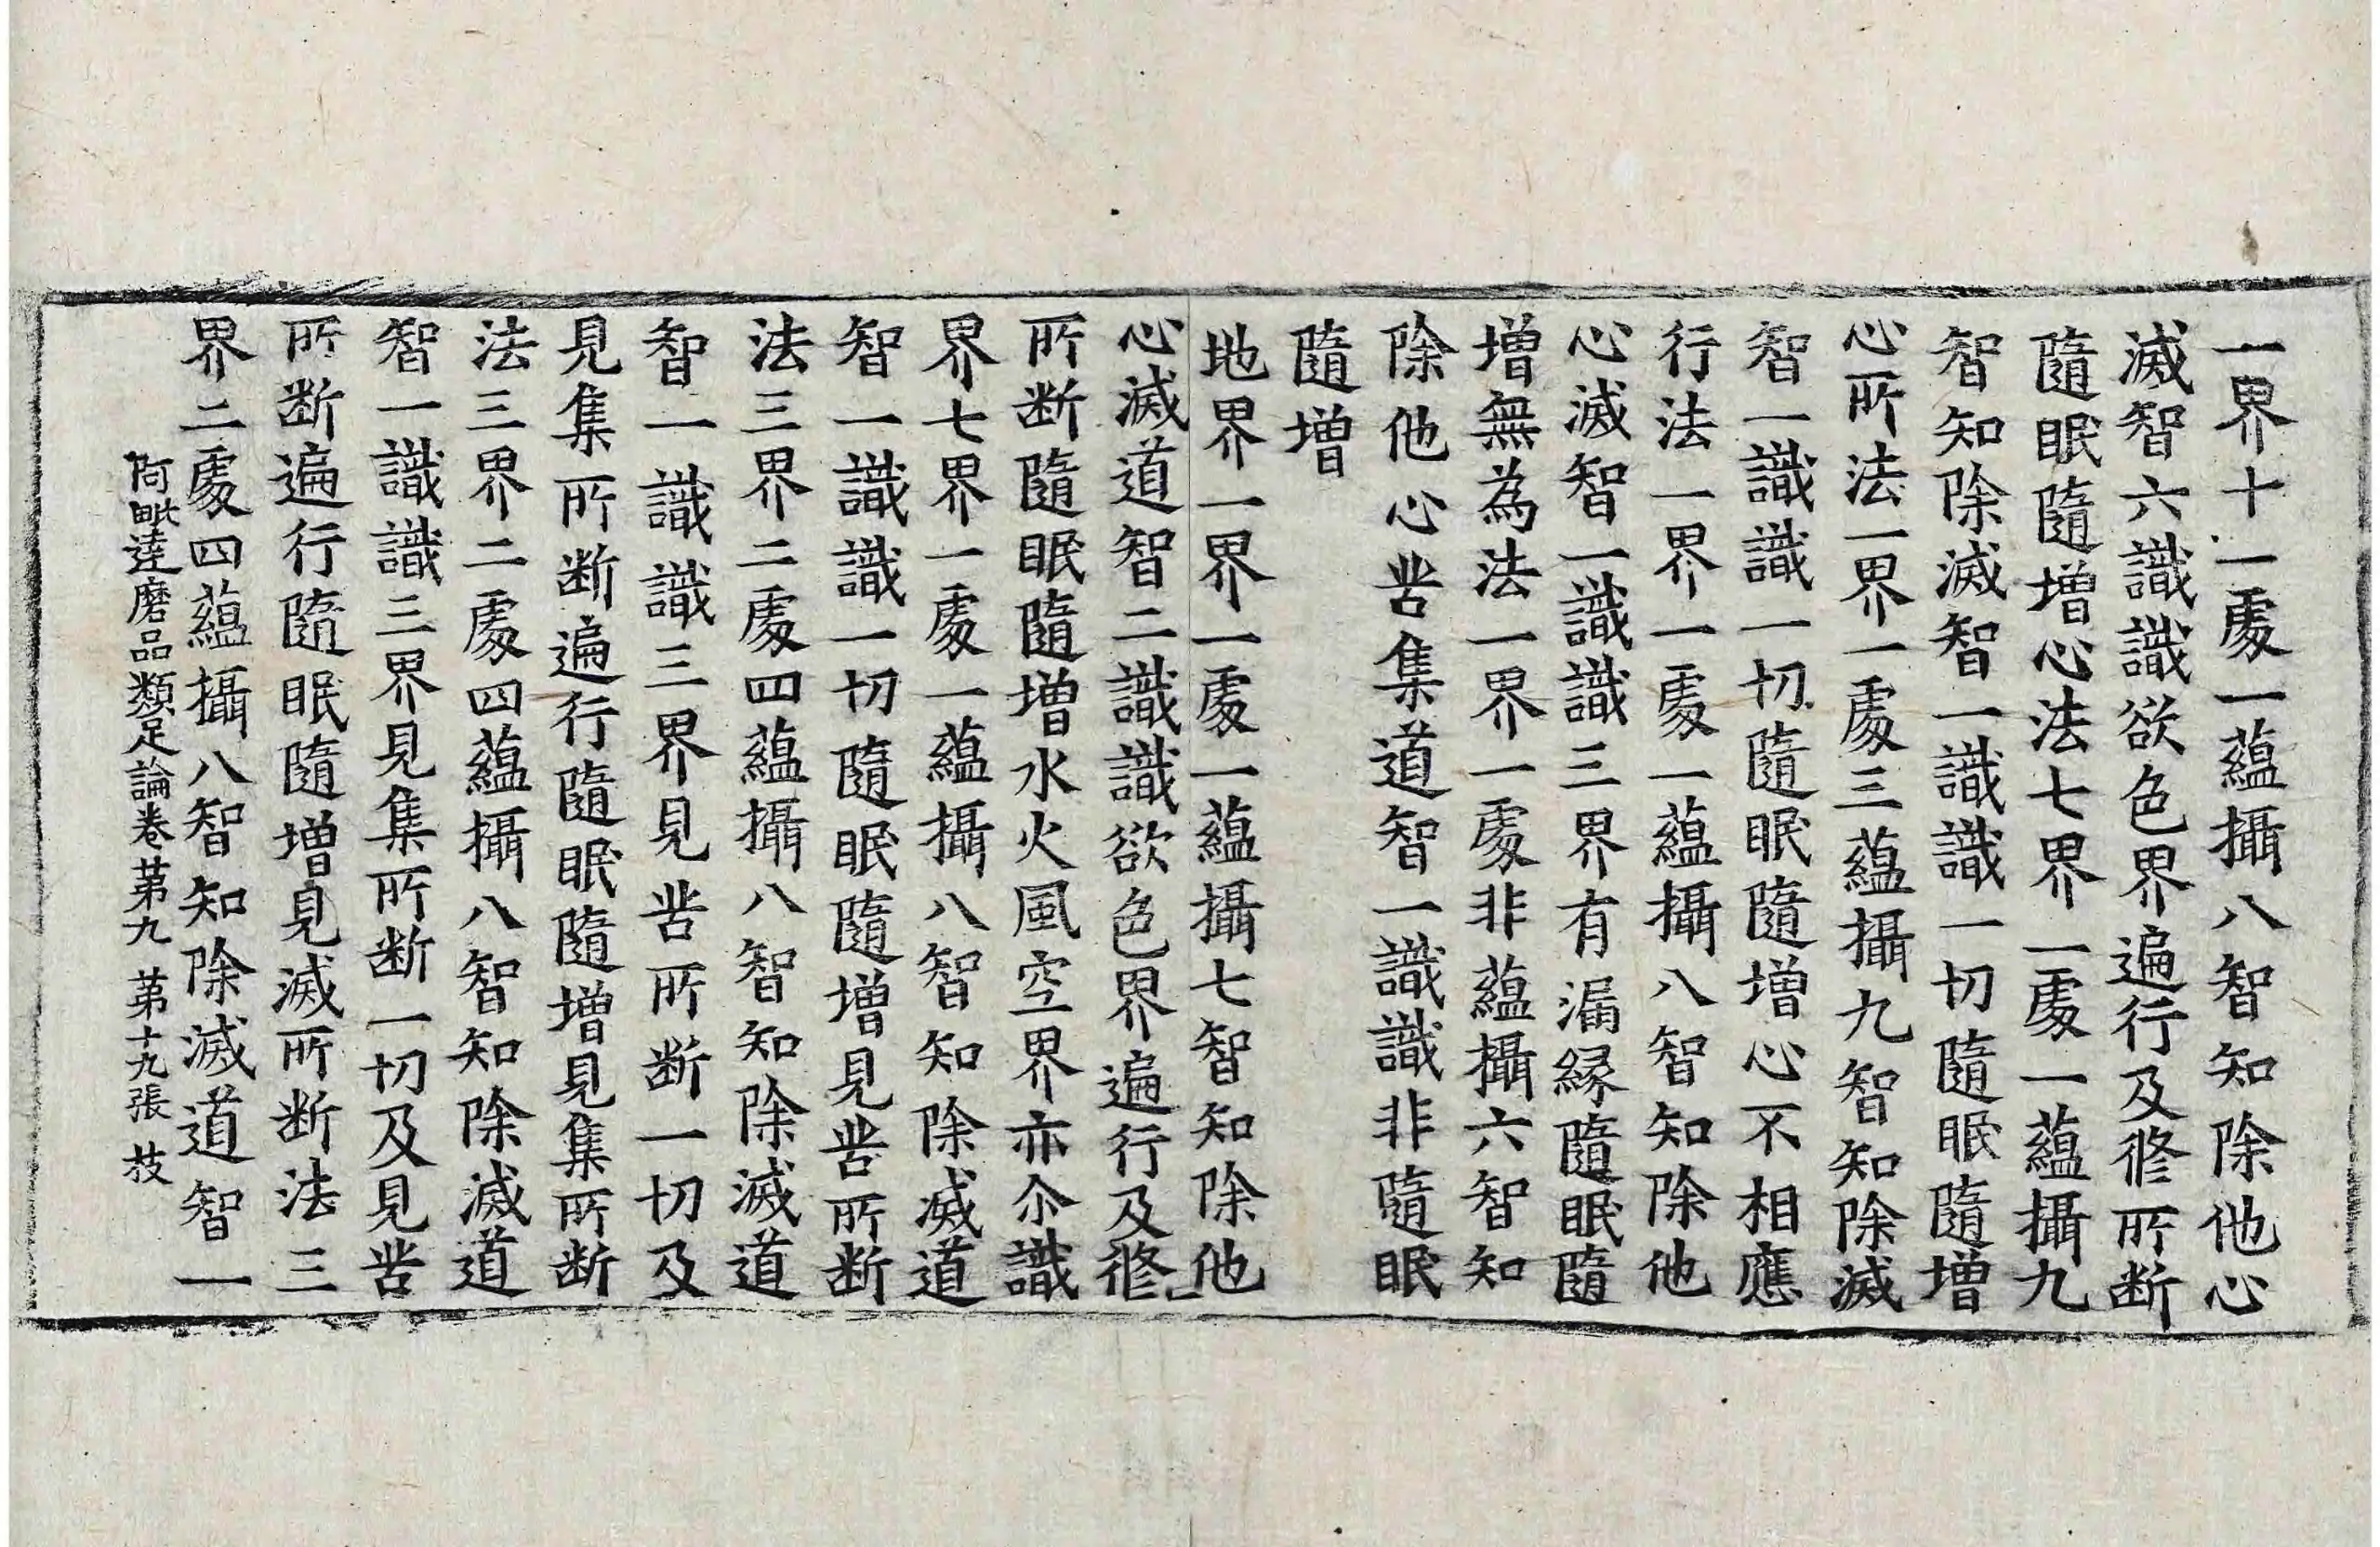 一界十一處一蘊攝八智知除他心
滅智六識識欲色界遍行及修所断
隨眠隨增心法七界一處一蘊攝九
智知除滅智一識識一切隨眠隨增
心所法一界一處三蘊攝九智知除滅
智一識識一切隨眠隨增心不相應
行法一界一處一蘊攝八智知除他
心滅智一識識三界有漏縁隨眠隨
增無為法一界一處非蘊攝六智知
除他心苦集道智一識識非隨眠
隨增
地界一界一處一蘊攝七智知除他
心滅道智二識識欲色界遍行及修
所断隨眠隨增水火風空界亦尒識
界七界一處一蘊攝八智知除滅道
智一識識一切隨眠隨增見苦所断
法三界二處四蘊攝八智知除滅道
智一識識三界見苦所断一切及
見集所断遍行隨眠隨增見集所断
法三界二處四蘊攝八智知除滅道
智一識識三界見集所断一切及見苦
所断遍行隨眠隨增見滅所断法三
界二處四蘊攝八智知除滅道智一
阿毗達磨品類足論卷苐九 苐十九張 技